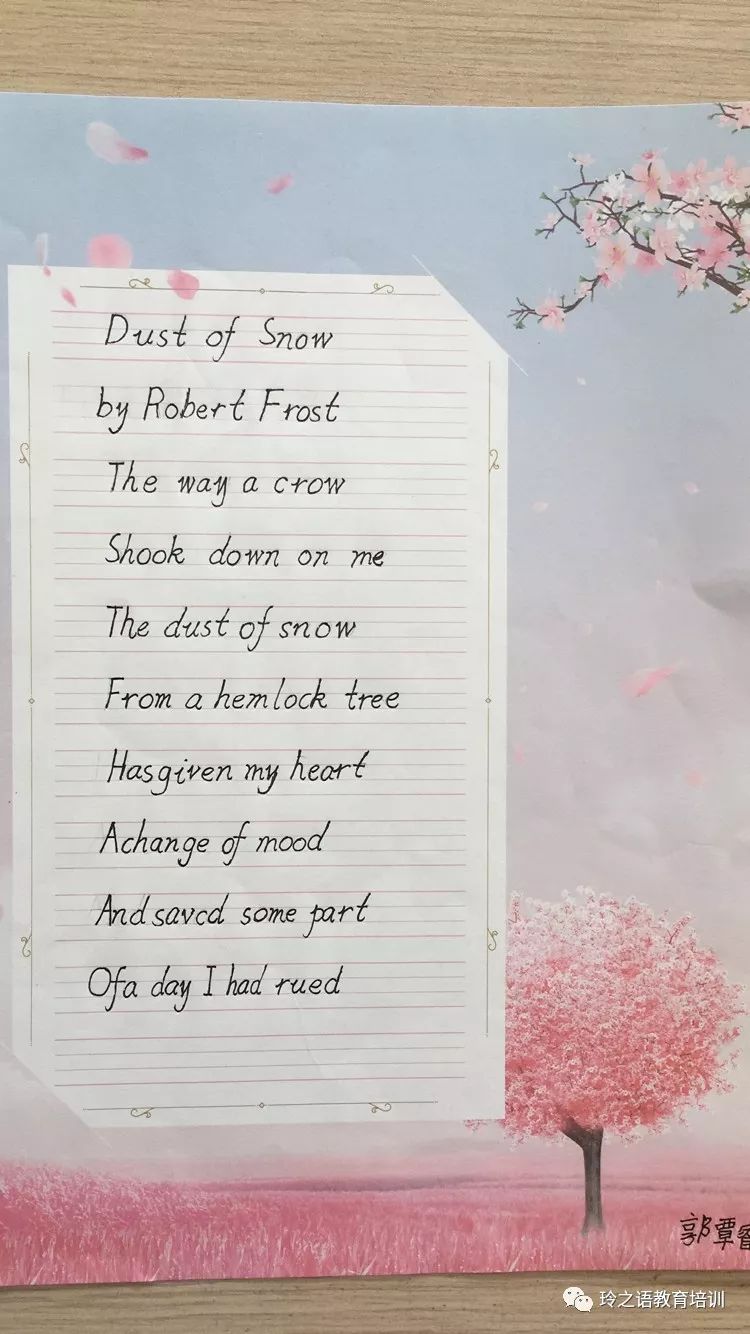 Dust of Snow
by Robert Frost
The way a crow
Shook down on me
The dust of snow
From a hemlock tree
Hasgiven my heart
Achange of mood
Andsavcd some part
Ofa day I had rued
郭覃
玲之语教育培训